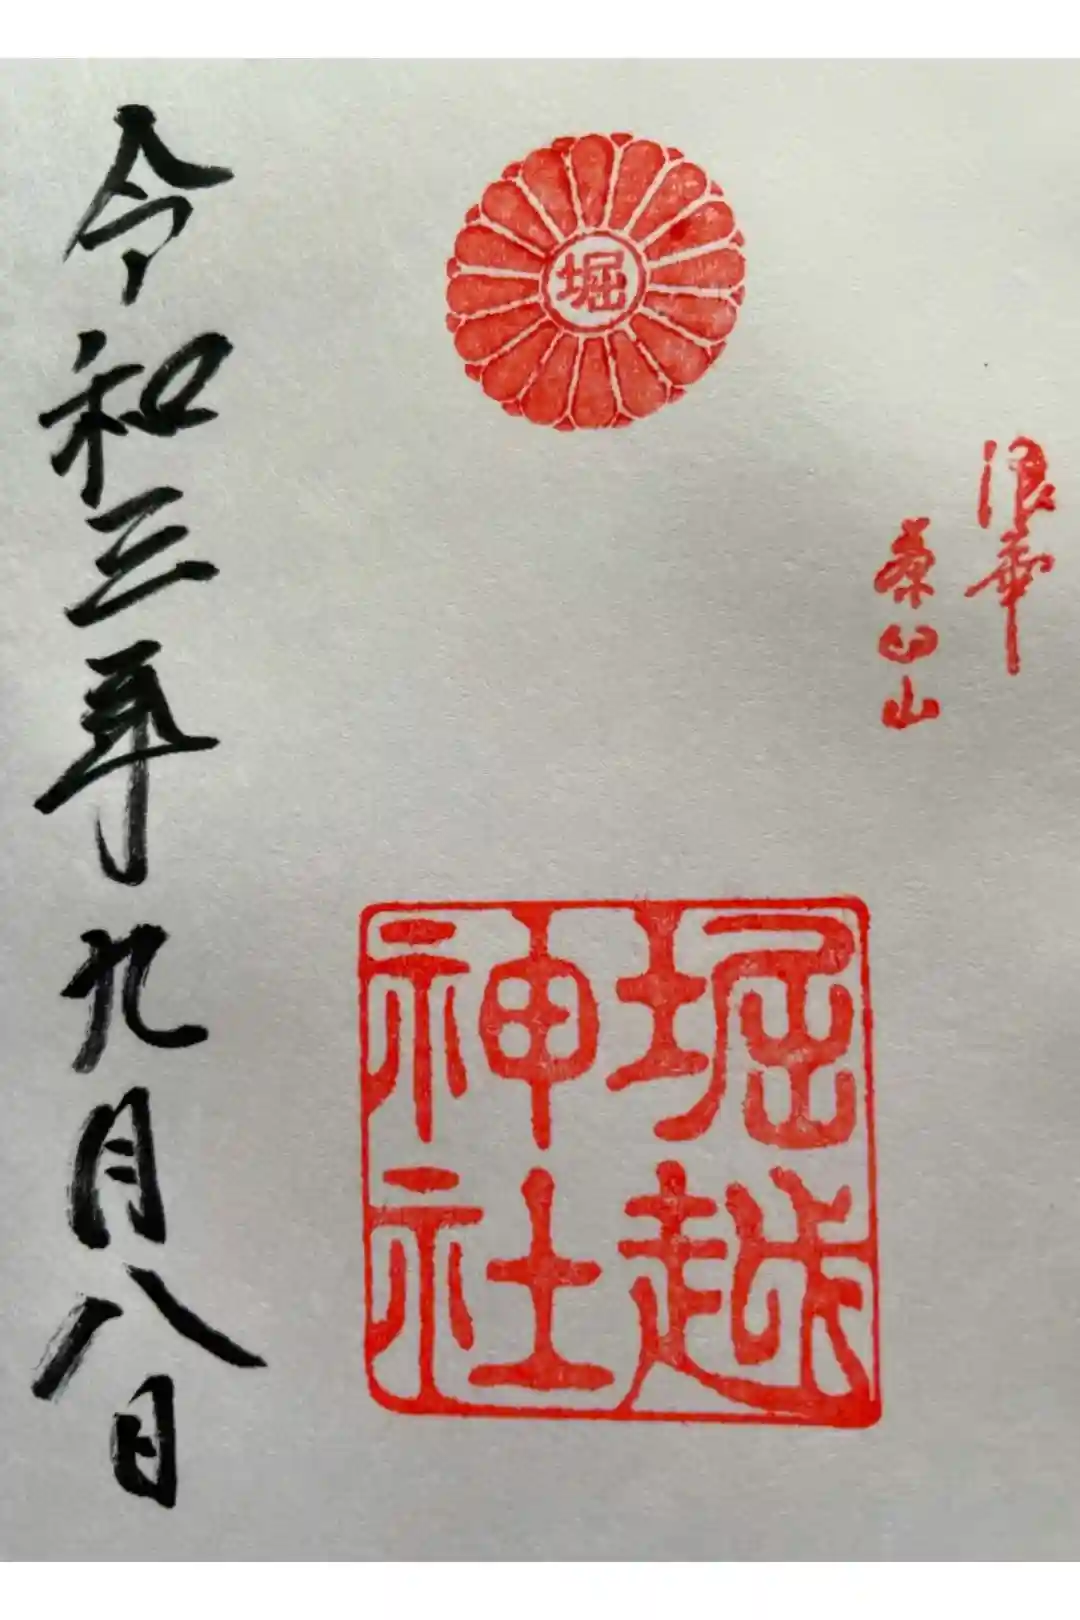 浪華
茶臼山
堀
堀越
神社
令和三年九月八日